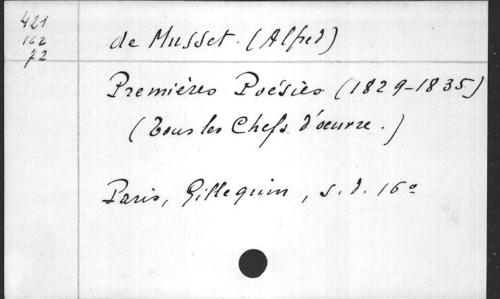 421
162
72
de Musset. (Alfred)
Premières Poésies (1829-1835)
(Tous les Chefs d'œuvre.)
Paris, Gillequin, s.d. 16°